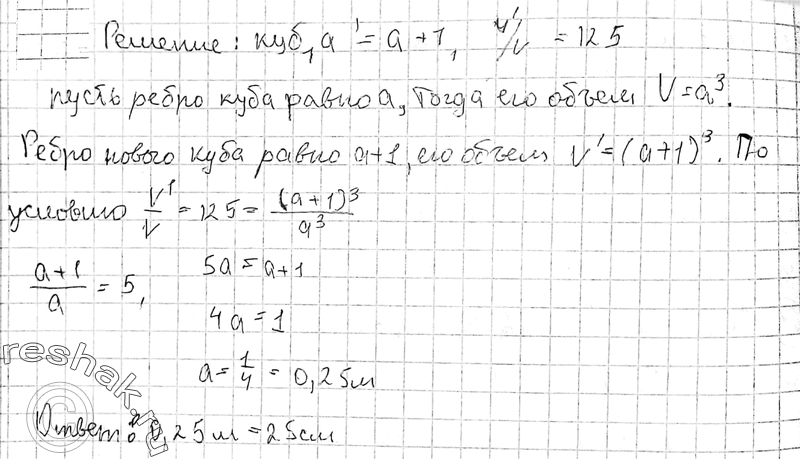 Решение: куб, a' = a+1, V'/V = 125
пусть ребро куба равно a, тогда его объем V=a³.
Ребро нового куба равно a+1, его объем V'=(a+1)³. По
условию V'/V = 125 = (a+1)³/a³
(a+1)/a = 5, 5a = a+1
4a = 1
a = 1/4 = 0,25м
Ответ: 0,25м = 25см
reshak.ru